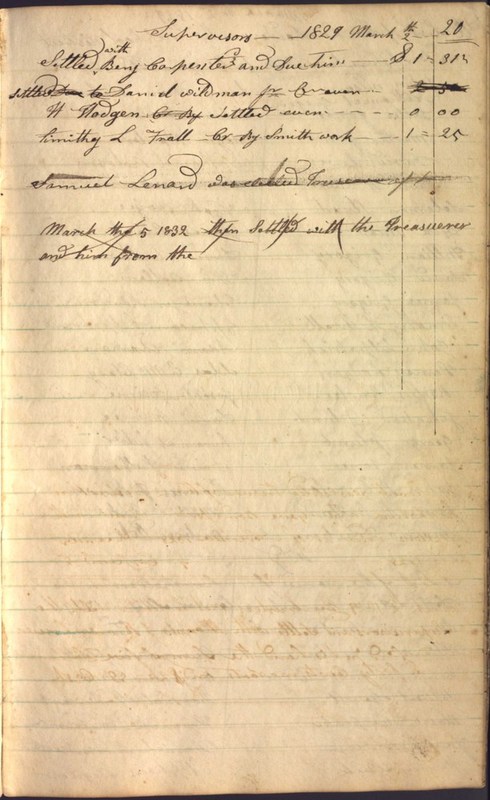 Supervisors — 1829 March th 2 20
Settled with Benj Carpenter and Due him $ 1 = 31
settled to Daniel wildman even
H Hodgen Cr By Settled even - - - 0 00
timithy L Trall Cr By Smith work - 1 = 25
Samuel Lenard was elected Treasurer
March the 5 1832 then Settled with the Treasurer
and him from the